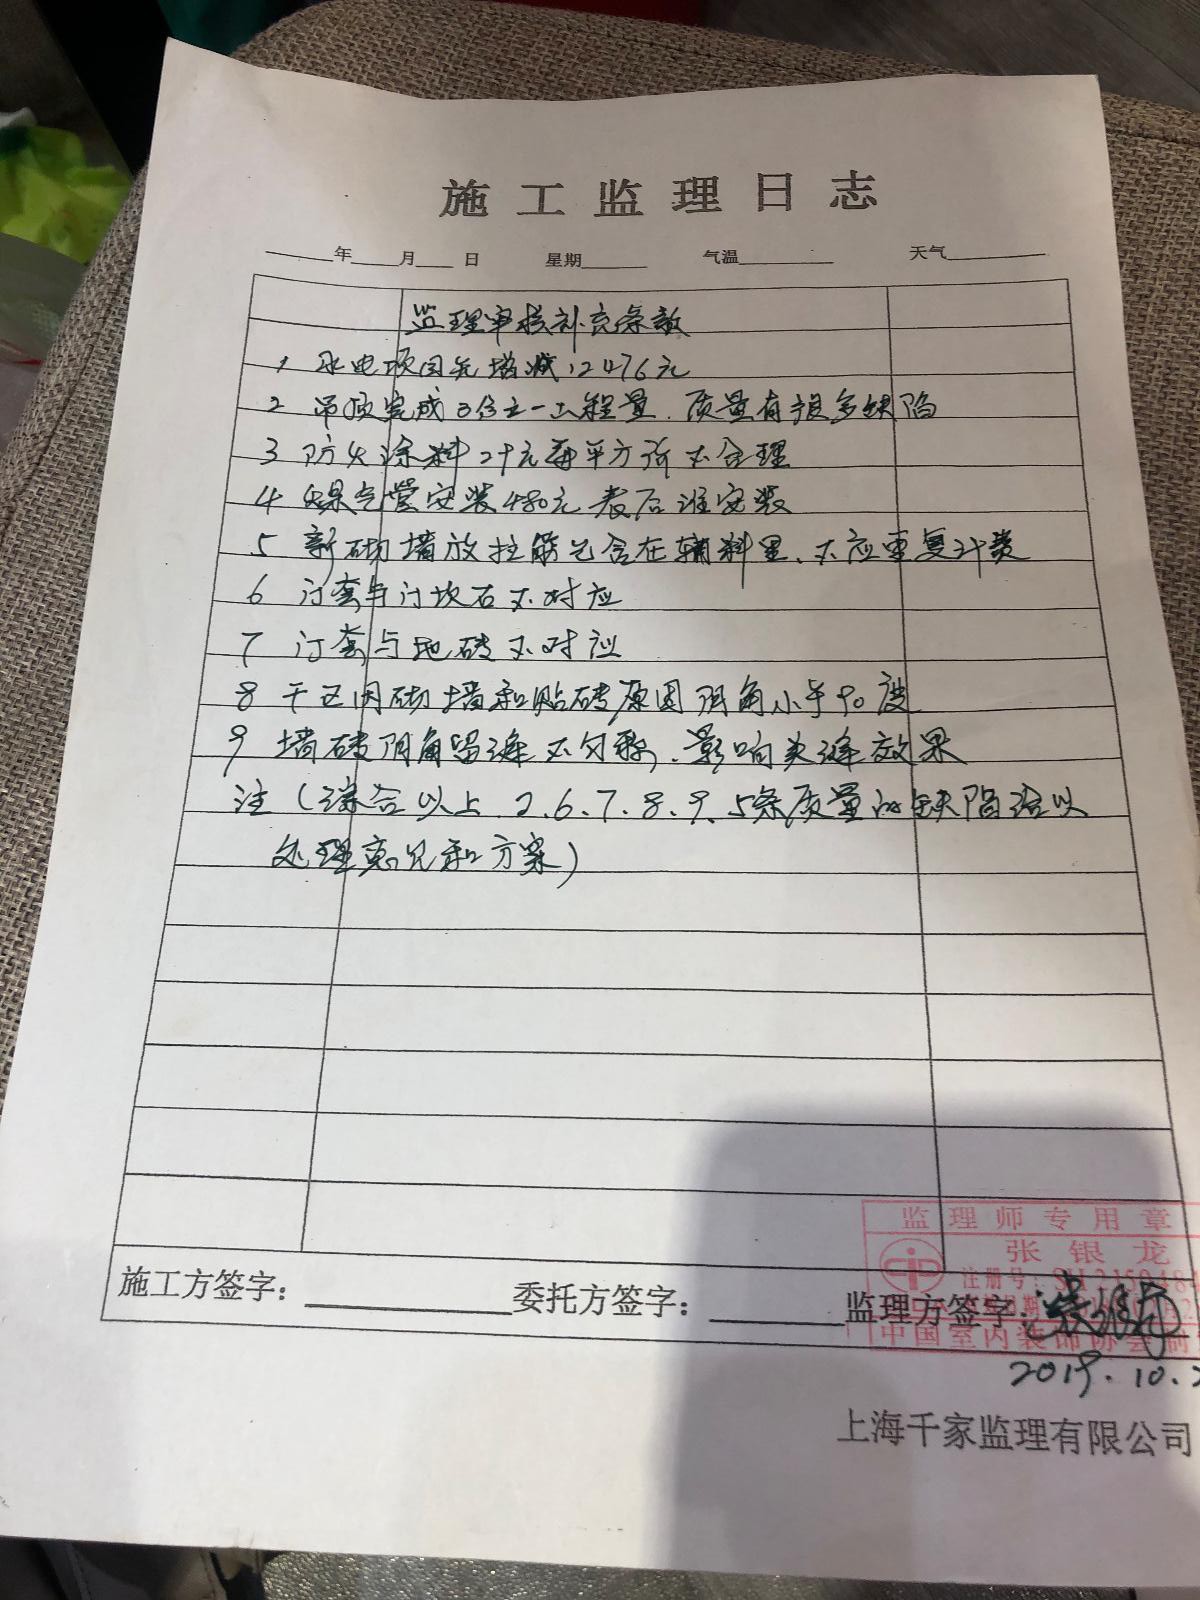 施工监理日志
年 月 日 星期 气温 天气
监理审核补充条款
1 水电项目先增减12476元
2 吊顶完成3分之一工程量.质量有很多缺陷
3 防火涂料29元每平方所不合理
4 煤气管安装480元表后谁安装
5 新砌墙放拉筋已含在辅料里、不应重复计费
6 门套与门坎石不对应
7 门套与地砖不对应
8 干区因砌墙和贴砖原因阴角小于90度
9 墙砖阴角留缝不匀称,影响美缝效果
注(综合以上.2.6.7.8.9.5条质量的缺陷给以
处理意见和方案)
监理师专用章
张银龙
注册号:
施工方签字: 委托方签字: 监理方签字:
中国室内装饰协会制
2019.10.2
上海千家监理有限公司